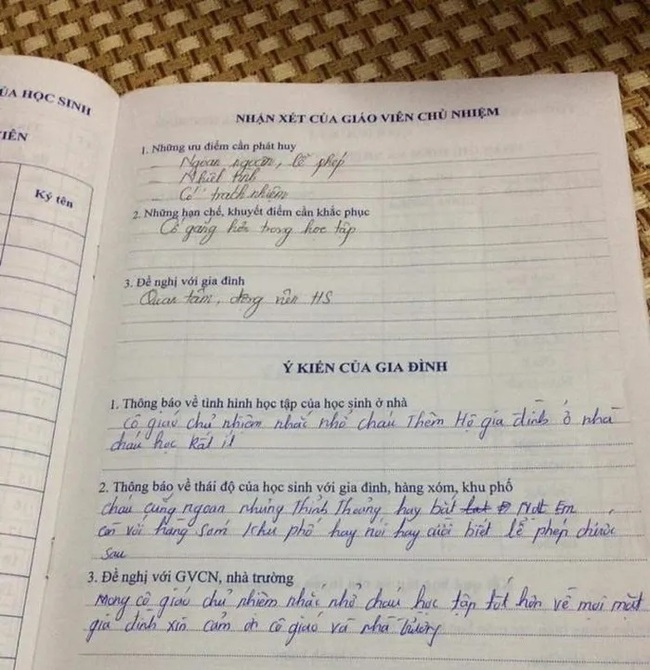 ỦA HỌC SINH
IÊN
Ký tên
NHẬN XÉT CỦA GIÁO VIÊN CHỦ NHIỆM
1. Những ưu điểm cần phát huy
Ngoan ngoãn, lễ phép
Nhiệt tình
Có trách nhiệm
2. Những hạn chế, khuyết điểm cần khắc phục
Cố gắng hơn trong học tập
3. Đề nghị với gia đình
Quan tâm, động viên HS
Ý KIẾN CỦA GIA ĐÌNH
1. Thông báo về tình hình học tập của học sinh ở nhà
Cô giáo chủ nhiệm nhắc nhở cháu Thêm Hộ gia đình ở nhà
cháu học Rất ít
2. Thông báo về thái độ của học sinh với gia đình, hàng xóm, khu phố
cháu cũng ngoan nhưng Thỉnh Thoảng hay bắt Nạt Em
còn với hàng Sóm khu phố hay nói hay cười biết lễ phép
sau
3. Đề nghị với GVCN, nhà trường
Mong cô giáo chủ nhiệm nhắc nhở cháu học tập tốt hơn về mọi mặt
gia đình xin cảm ơn cô giáo và nhà Trường